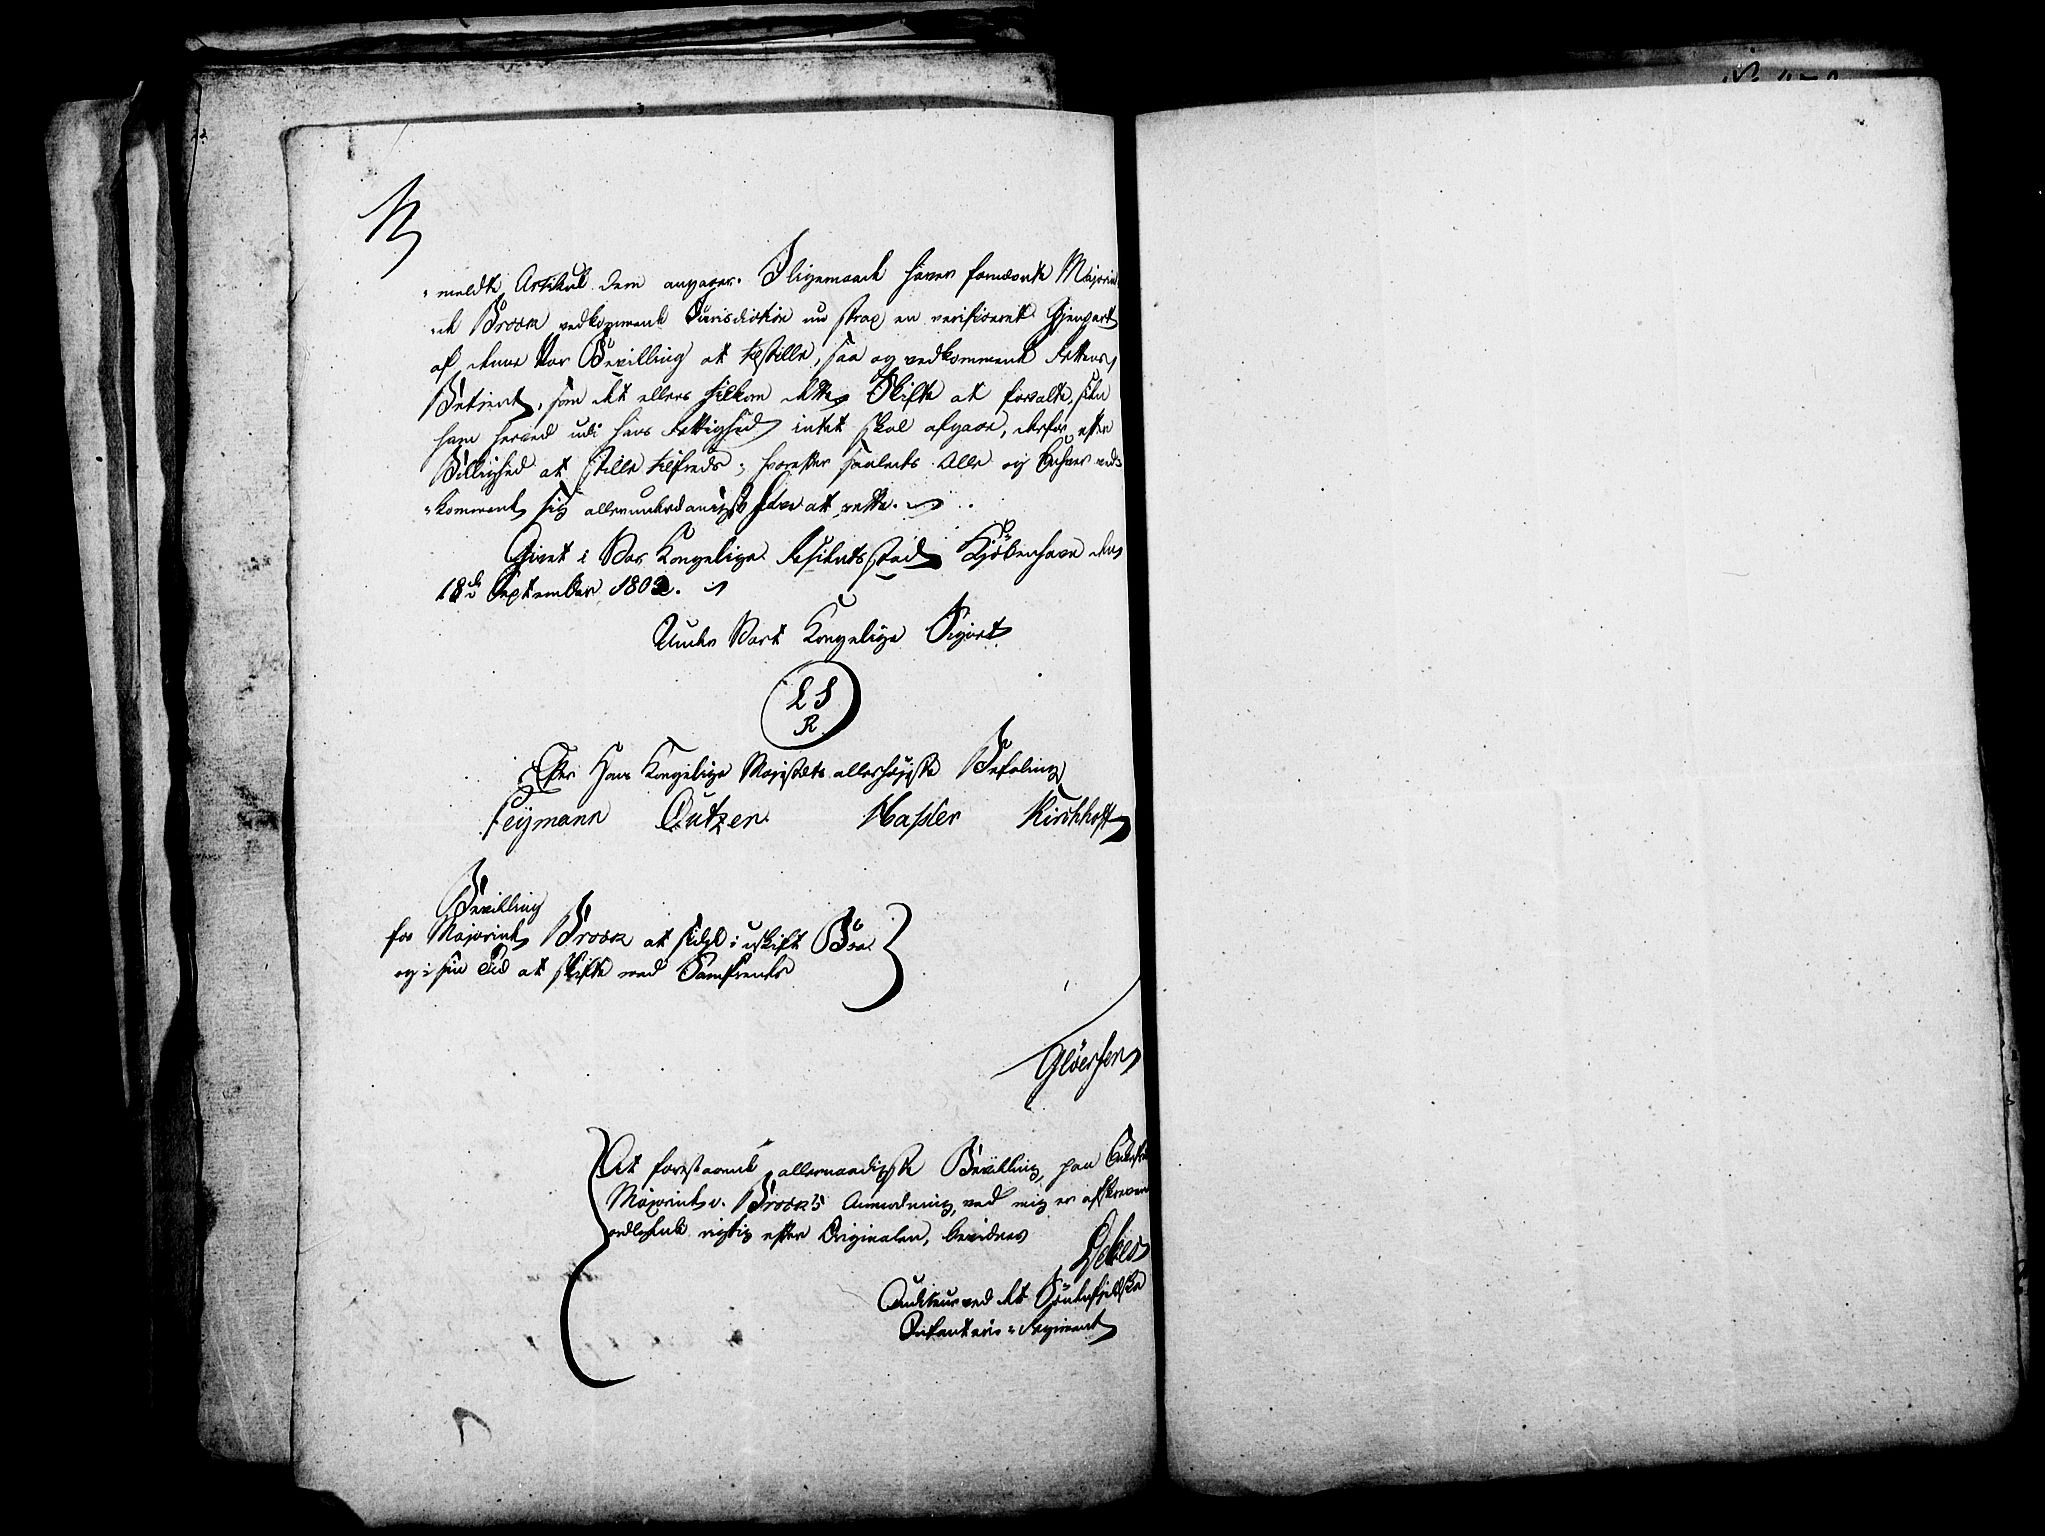 meldte Artikul dem angaaer. Iligemaade haver fornævnte Majorin¬
¬de Broch vedkommende Jurisdiction nu strax en verificeret Gjenpart
af denne Vor Bevilling at tilstille, saa og vedkommende Rettens
Betient, som det ellers tilkom dette Skifte at forvalte, siden
ham herved udi hans Rettighed intet skal afgaae, derfor efter
Billighed at stille tilfreds; hvorefter saaledes Alle og Enhver ved¬
¬kommende sig allerunderdanigst have at rette.
Givet i Vor Kongelige Residentsstad Kjöbenhavn den
18de September 1802.
Under Vort Kongelige Signet
L S
R
Efter Hans Kongelige Majestæts allerhöjeste Befaling
Feÿmann Outzen Hasler Kirchhoff
Bevilling
for Majorinde Broch at sidde i uskift Boe
og i sin Tid at skifte med Samfrender
Glöersen
At forestaaende allernaadigste Bevilling, paa
Majorinde v. Broch's Anmodning, ved mig er afskreven
ordlydende rigtig efter Originalen, bevidner
Auditeur ved det Söndenfieldske
Infanterie-Regiment